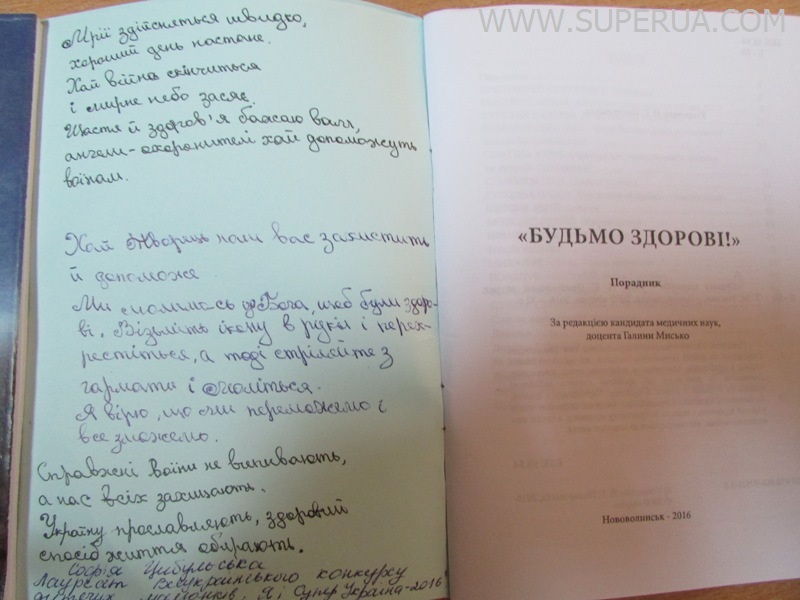 Мрії здійсняться швидко,
хороший день настане.
Хай війна скінчиться
і мирне небо засяє.
Щастя й здоров'я бажаю воїл,
ангели-охоронителі хай допоможуть
воїнам.
Хай Творець коли вас захистить
й допоможе.
Ми молимось до Бога, щоб були здоро-
ві. Візьміть ікону в руки і перех-
рестіться, а тоді стріляйте з
гармати і моліться.
Я вірю, що ми переможемо і
все зможемо.
Справжні воїни не випивають,
а нас всіх захищають.
Україну прославляють, здоровий
спосіб життя обирають.
Софія Цибульська
Лауреат Всеукраїнського конкурсу
Я і СуперУкраїна-2016
WWW.SUPERUA.COM
«БУДЬМО ЗДОРОВІ!»
Порадник
За редакцією кандидата медичних наук,
доцента Галини Мисько
Нововолинськ - 2016